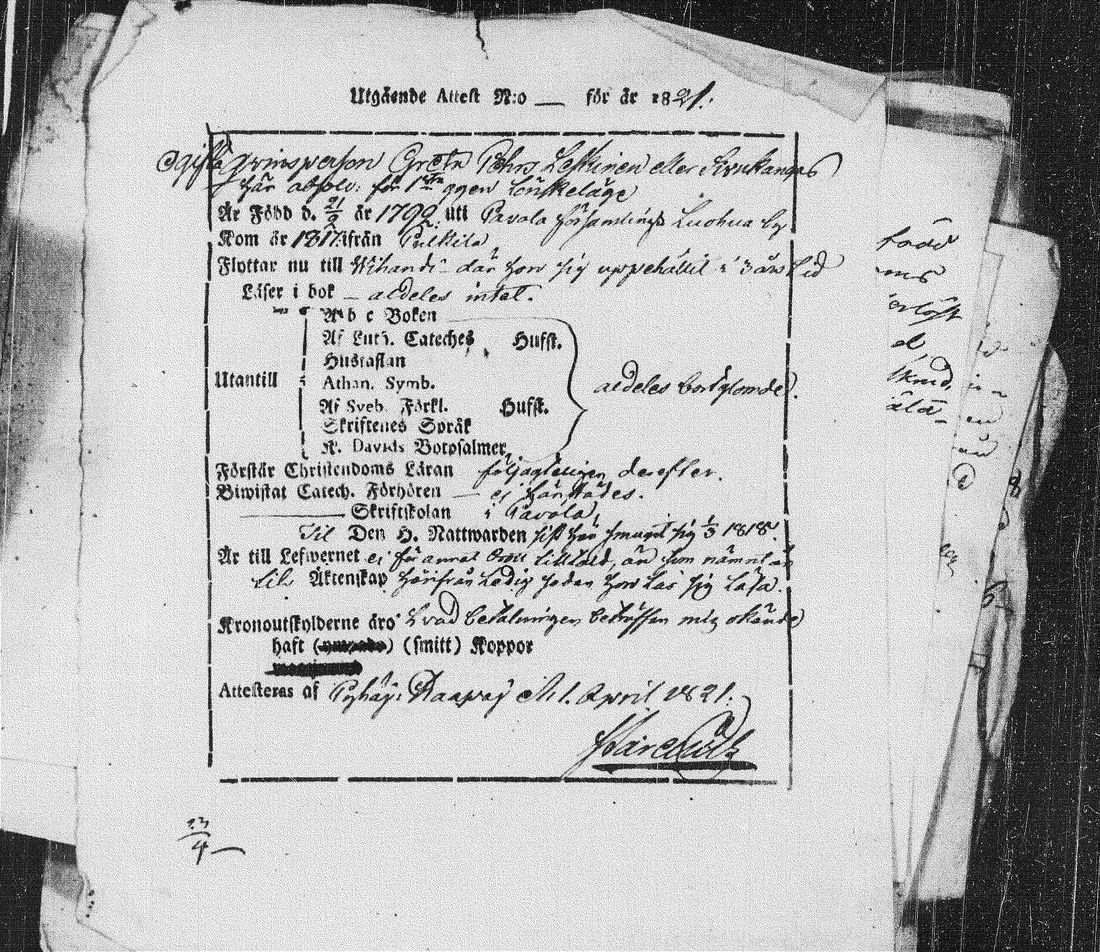 Utgående Attest N:o — för år 1821.
Ogifta qvinspersonen Greta Pehrs. Leskinen eller Kinukangas
här absolv: för 1sta ggen Lönskeläge
Är Född d. 21/9 år 1792. uti Pavola församlings Luohua by
Kom år 1817 ifrån Pulkila
Flyttar nu till Wihandi där hon sig uppehållit i 3 års tid
Läser i bok – aldeles intet.
A b c Boken
Af Luth. Cateches Hufst.
Hustaflan
Utantill Athan. Symb. aldeles bortglömde.
Af Sveb. Förkl. Hufst.
Skriftenes Språk
K. Davids Botpsalmer
Förstår Christendoms Läran följagteligen derefter.
Biwistat Catech. Förhören — ej härstädes.
Skriftskolan i Pavola
Til Den H. Nattwarden sist här smugit sig 1/3 1818.
Är till Lefwernet ej för annat Brott tilltald, än som nämnt är
til Äktenskap härifrån Ledig sedan hon Lär sig Läsa.
Kronoutskylderne äro hvad betalningen beträffar mig okände
haft (smitt) Koppor
Attesteras af Pyhäj: d. 1. April 1821.
23/4